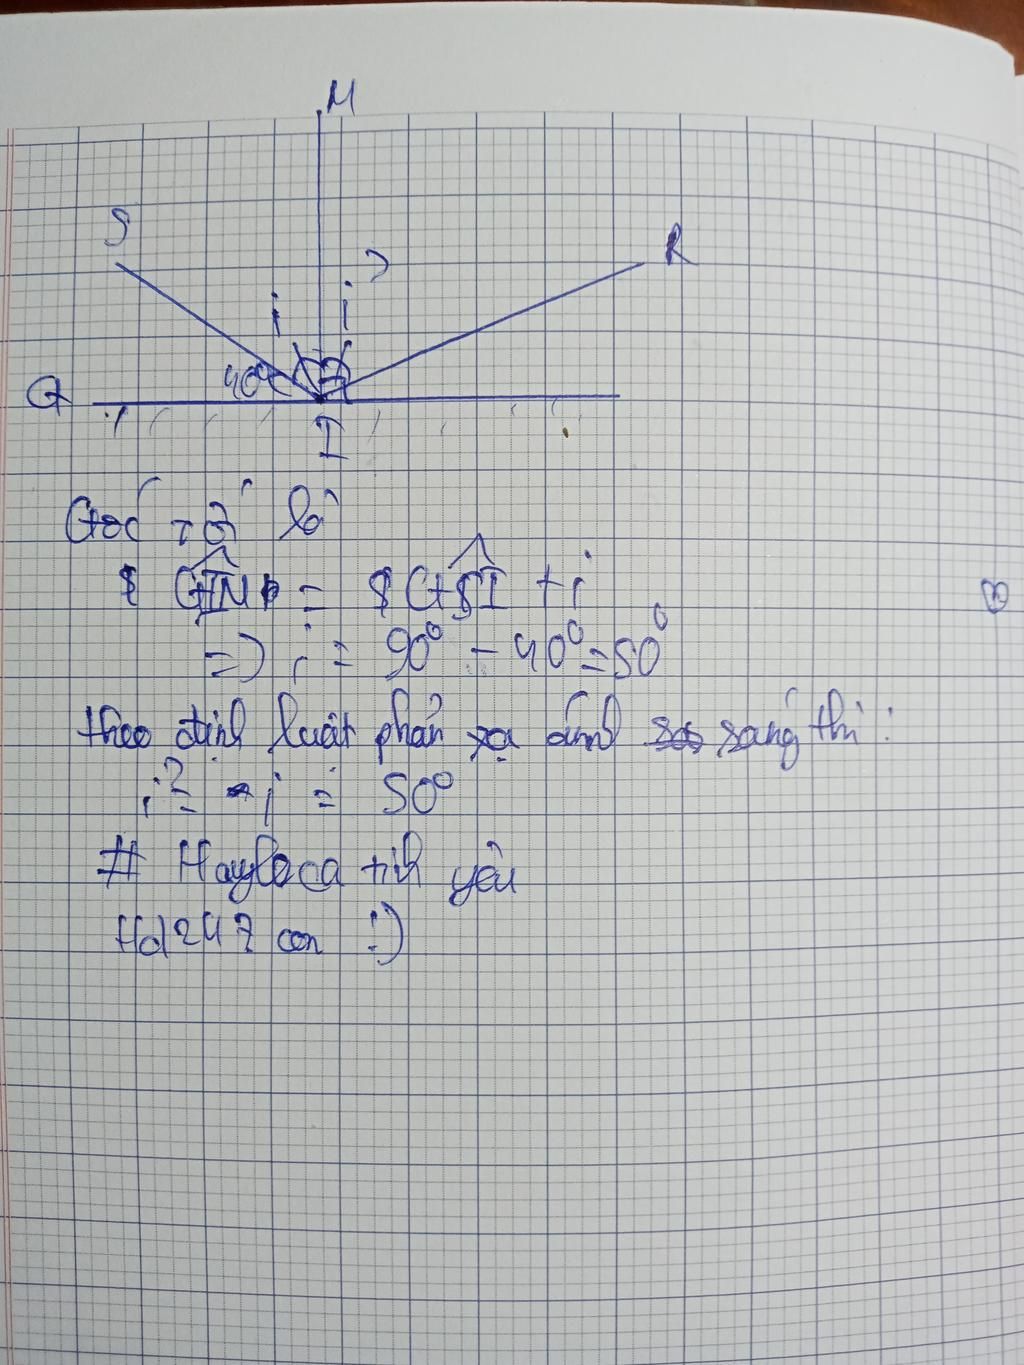 N
S
R
i
i'
40°
G
I
Góc tới là
GIN = GSI + i
=> i = 90° - 40° = 50°
theo định luật phản xạ ánh sáng thì :
i' = i = 50°
# Hayloca tih yêu
Hd247 con :)